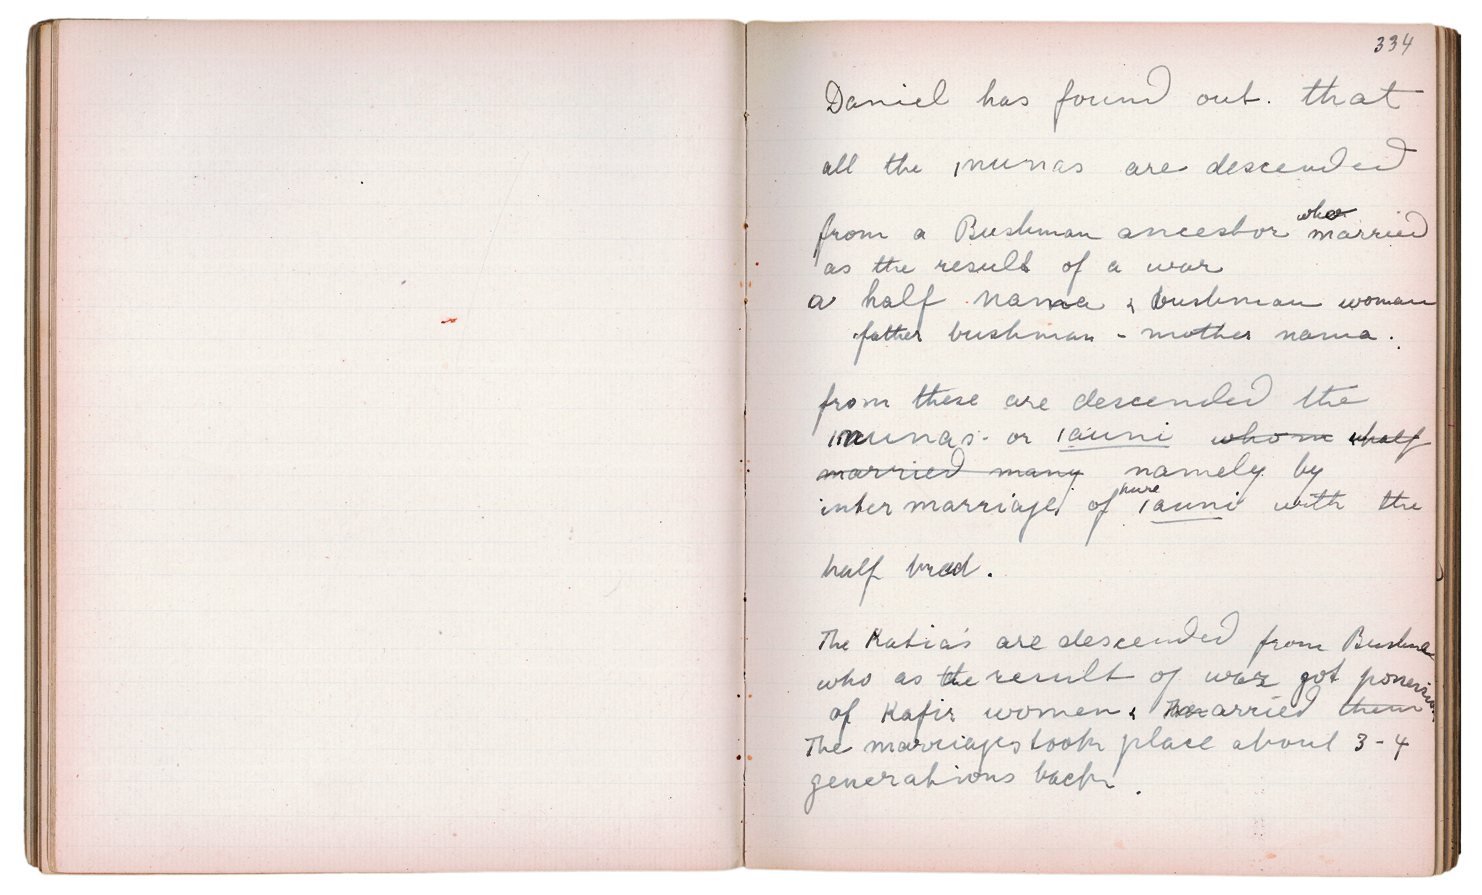 334
Daniel has found out. that
all the ǀnunas are descended
from a Bushman ancestor who married
as the result of a war
a half nama & bushman woman
father bushman - mother nama.
from these are descended the
ǀnunas - or ǀauni whom half
married many namely by
inter marriage of pure ǀauni with the
half bred.
The Katia's are descended from Bushme
who as the result of war got possession
of Kafir women & married them
The marriages took place about 3-4
generations back.